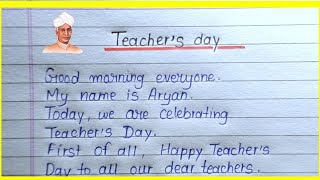 Teacher's day
Good morning everyone.
My name is Aryan.
Today, we are celebrating
Teacher's Day.
First of all, Happy Teacher's
Day to all our dear teachers.